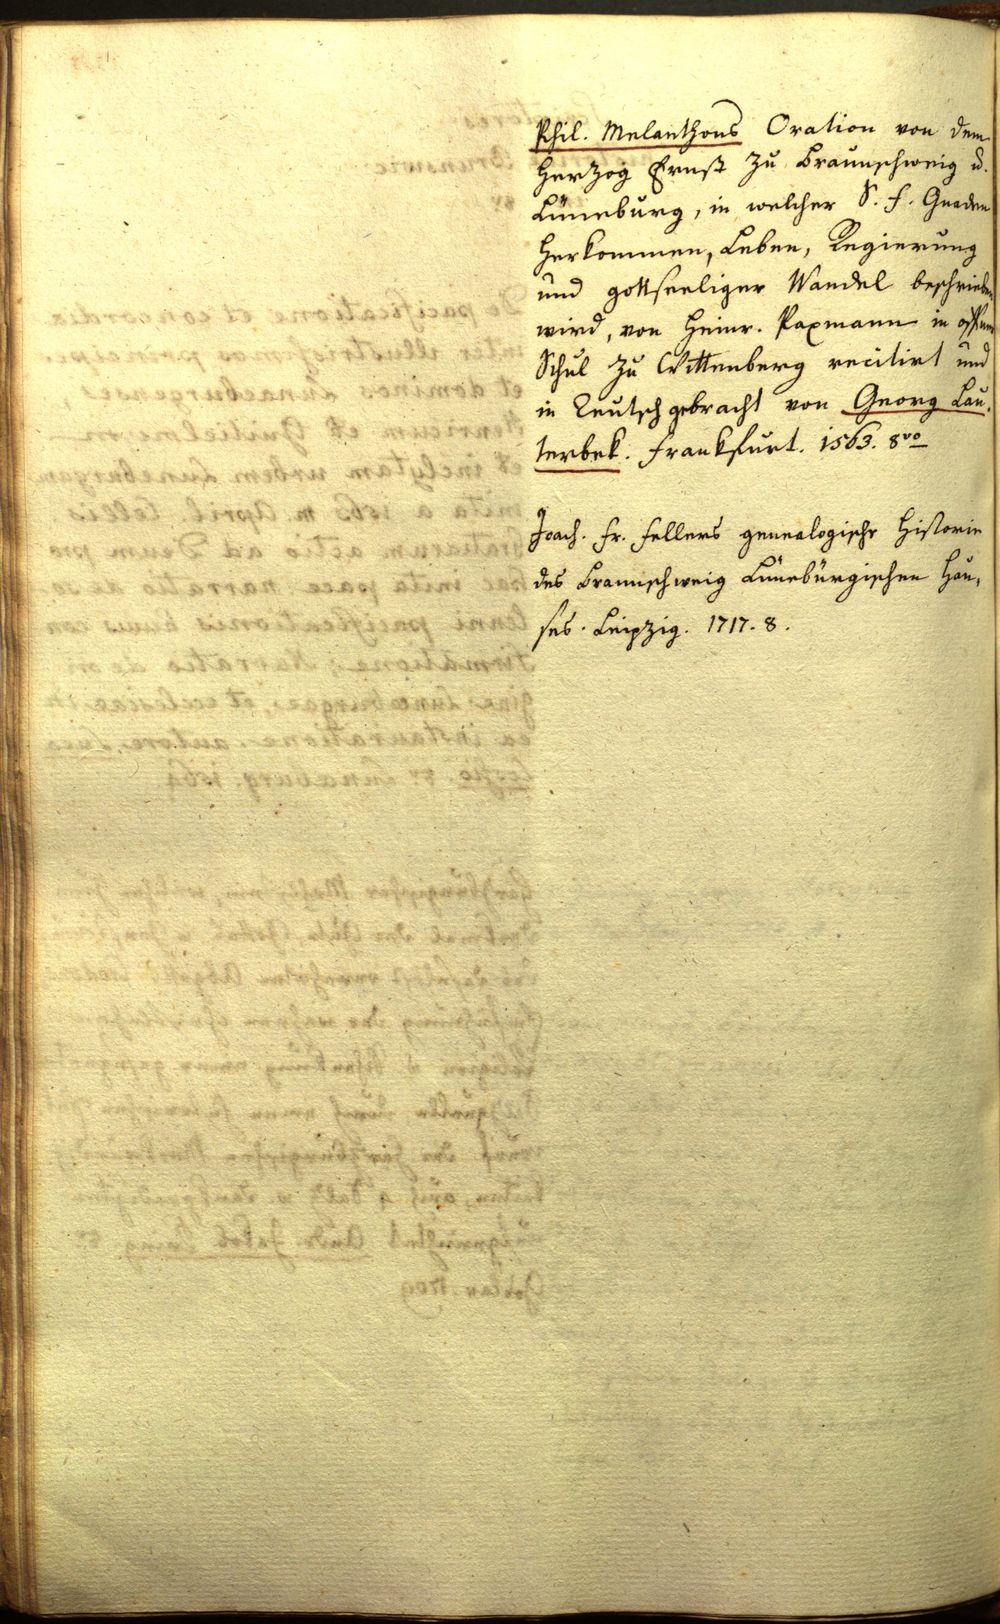 Phil. Melanthons Oration von dem
Herzog Ernst zu Braunschweig u.
Lüneburg, in welcher S. F. Gnaden
Herkommen, Leben, Regierung
und gottseeliger Wandel beschrieben
wird, von Heinr. Paxmann in offner
Schul zu Wittenberg recitirt und
in Teutsch gebracht von Georg Lau-
terbek. Frankfurt. 1563. 8vo
Joach. Fr. Fellers genealogische Historie
des Braunschweig Lüneburgischen Hau-
ses. Leipzig. 1717. 8.